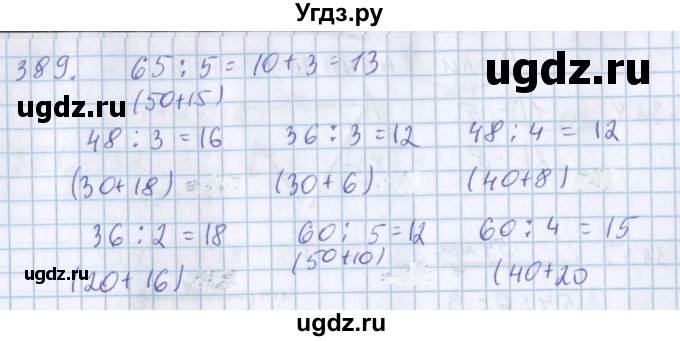 Угдз.ру
389. 65 : 5 = 10 + 3 = 13
(50+15)
48 : 3 = 16 36 : 3 = 12 48 : 4 = 12
(30+18) (30+6) (40+8)
36 : 2 = 18 60 : 5 = 12 60 : 4 = 15
(20+16) (50+10) (40+20
ugdz.ru
ugdz.ru
ugdz.ru
ugdz.ru
ugdz.ru
ugdz.ru
ugdz.ru